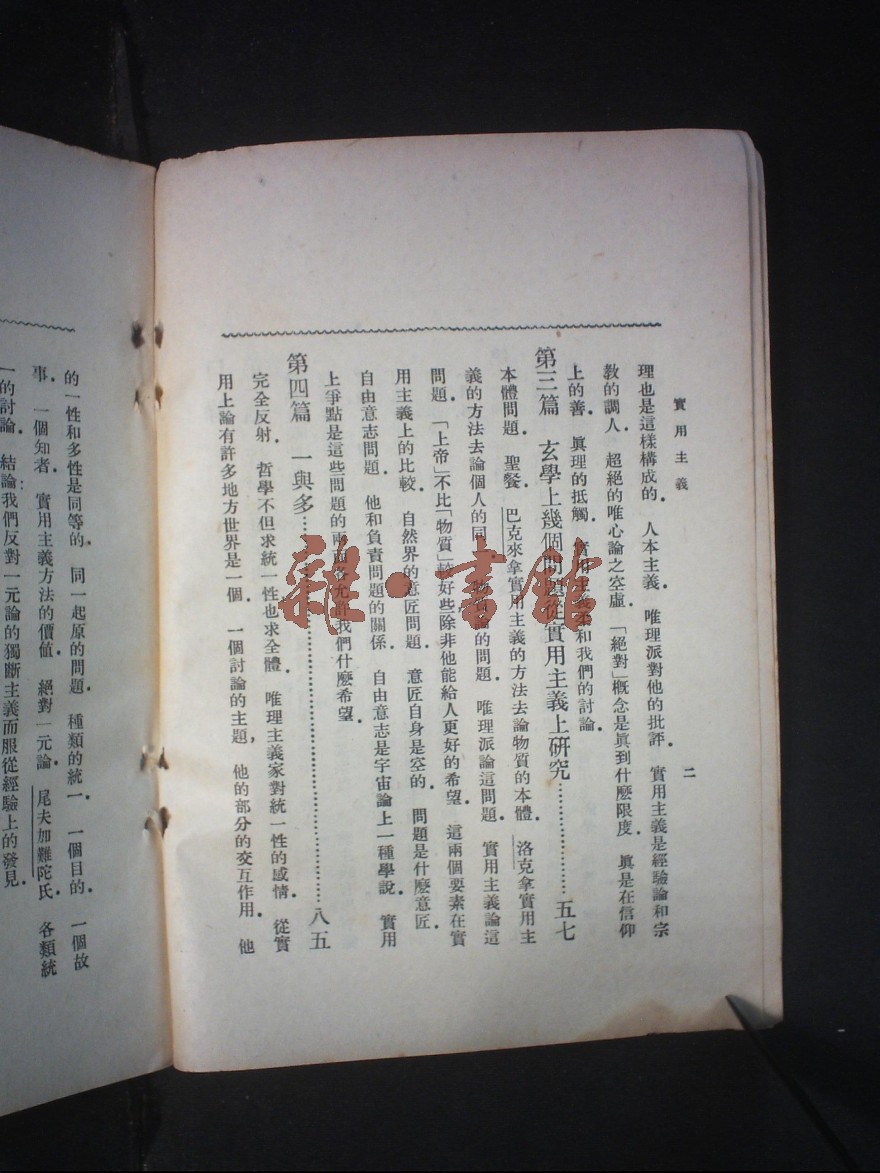 實用主義
二
理也是這樣構成的．人本主義．唯理派對他的批評．實用主義是經驗論和宗
教的調人．超絕的唯心論之空虛．「絕對」概念是眞到什麽限度．眞是在信仰
上的善．眞理的抵觸．實用主義柔和我們的討論．
第三篇 玄學上幾個問題從實用主義上研究……………五七
本體問題．聖餐．巴克來拿實用主義的方法去論物質的本體．洛克拿實用主
義的方法去論個人的同．物質論的問題．唯理派論這問題．實用主義論這
問題．「上帝」不比「物質」較好些除非他能給人更好的希望．這兩個要素在實
用主義上的比較．自然界的意匠問題．意匠自身是空的．問題是什麽意匠．
自由意志問題．他和負責問題的關係．自由意志是宇宙論上一種學說．實用
上爭點是這些問題的兩面各允許我們什麽希望．
第四篇 一與多……………八五
完全反射．哲學不但求統一性也求全體．唯理主義家對統一性的感情．從實
用上論有許多地方世界是一個．一個討論的主題，他的部分的交互作用．他
的一性和多性是同等的．同一起原的問題．種類的統一．一個目的．一個故
事．一個知者．實用主義方法的價值．絕對一元論．尾夫加難陀氏．各類統
一的討論．結論：我們反對一元論的獨斷主義而服從經驗上的發見．
雜·書館